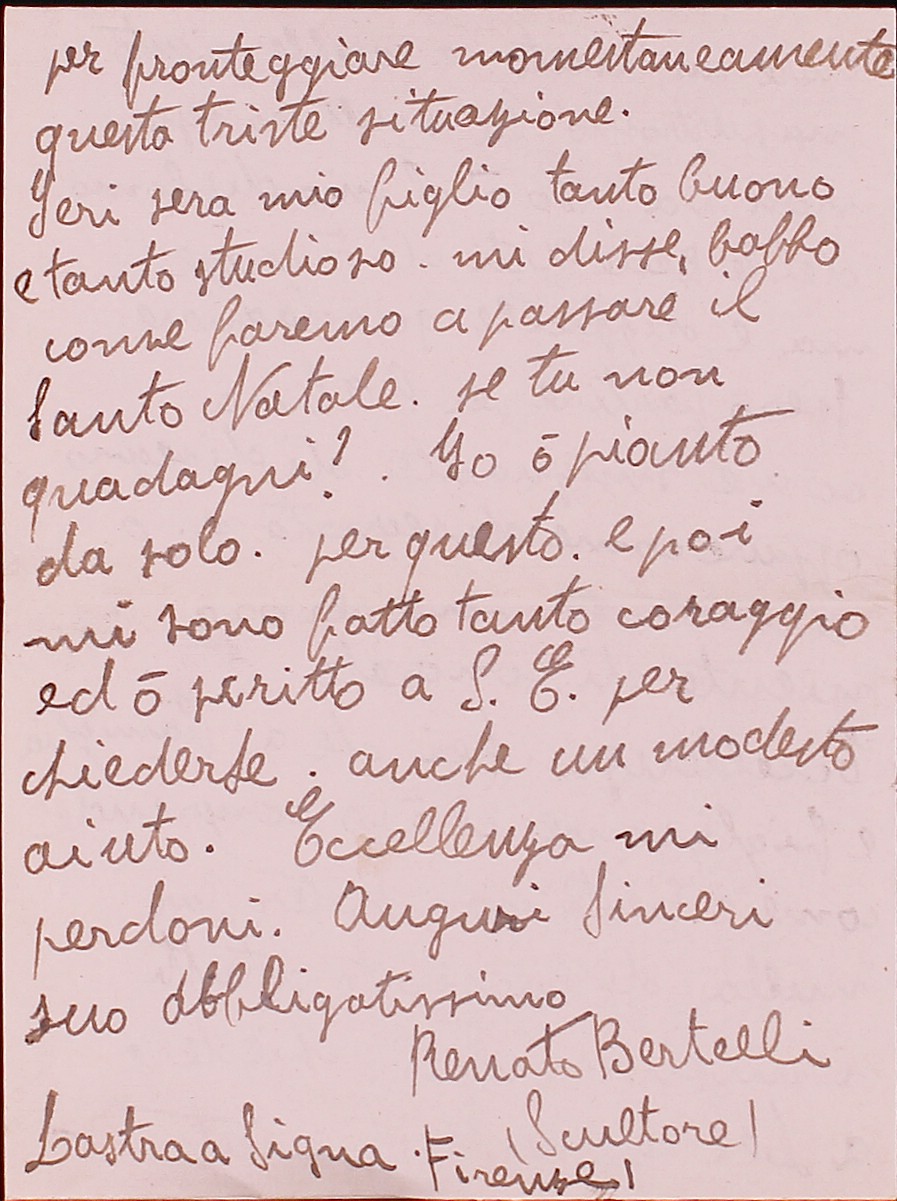 per fronteggiare momentaneamente
questa triste situazione.
Ieri sera mio figlio tanto buono
e tanto studioso. mi disse, babbo
come faremo a passare il
Santo Natale. se tu non
guadagni?. Io ō pianto
da solo. per questo. e poi
mi sono fatto tanto coraggio
ed ō scritto a S. E. per
chiederle. anche un modesto
aiuto. Eccellenza mi
perdoni. Auguri Sinceri
suo obbligatissimo
Renato Bertelli
(Scultore)
Lastra a Signa. Firenze)